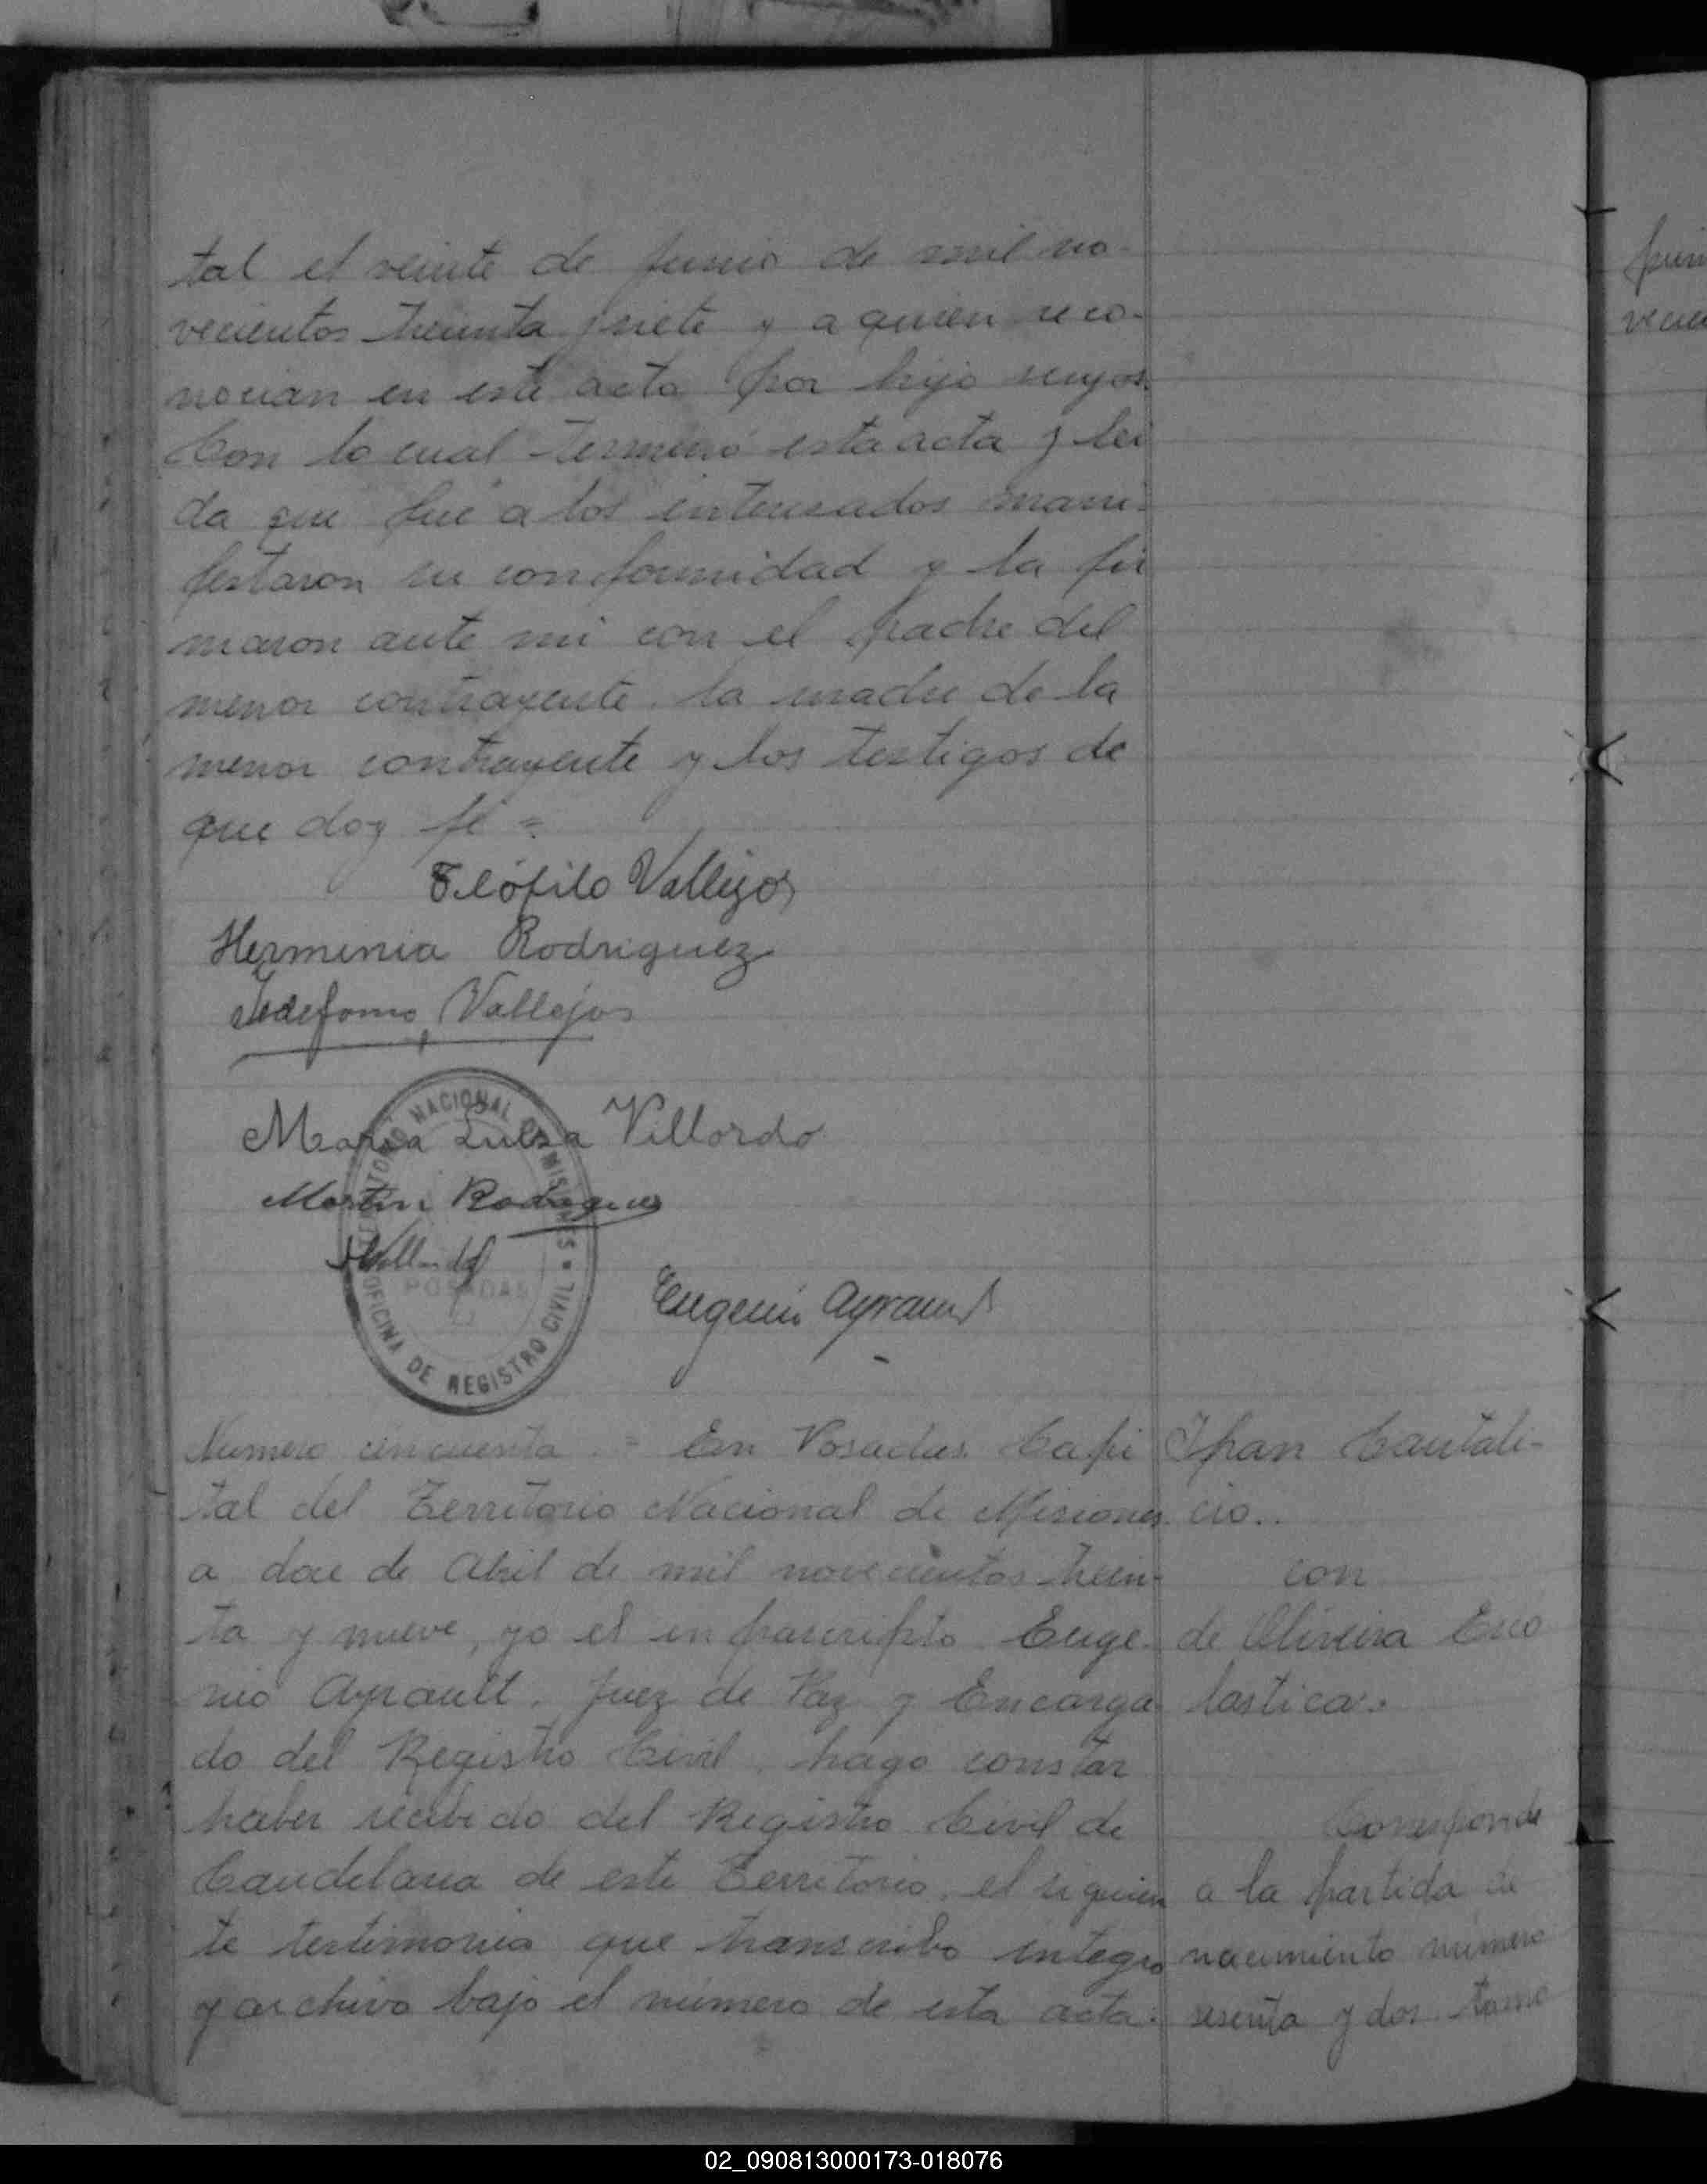 tal el veinte de junio de mil no-
vecientos treinta y siete y a quien reco-
nocian en este acto por hijo suyos.
Con lo cual terminó esta acta y lei
da que fué a los interesados mani-
festaron su conformidad y la fir
maron ante mi con el padre del
menor contrayente, la madre de la
menor contrayente y los testigos de
que doy fé =
Teófilo Vallejos
Herminia Rodriguez
Ildefonso Vallejos
Maria Luisa Villordo
Martin Rodriguez
Eugenio Ayrault
TERRITORIO NACIONAL DE MISIONES
POSADAS
OFICINA DE REGISTRO CIVIL
Numero cincuenta. = En Posadas Capi
tal del Territorio Nacional de Misiones
a doce de Abril de mil novecientos trein-
ta y nueve, yo el infrascripto Euge-
nio Ayrault, Juez de Paz y Encarga
do del Registro Civil, hago constar
haber recibido del Registro Civil de
Candelaria de este Territorio, el siguien
te testimonio que transcribo integro
y archivo bajo el número de esta acta:
Ifran Cantali-
cio..
con
de Oliveira Esco
lastica.
Corresponde
a la partida de
nacimiento número
sesenta y dos tomo
02_090813000173-018076